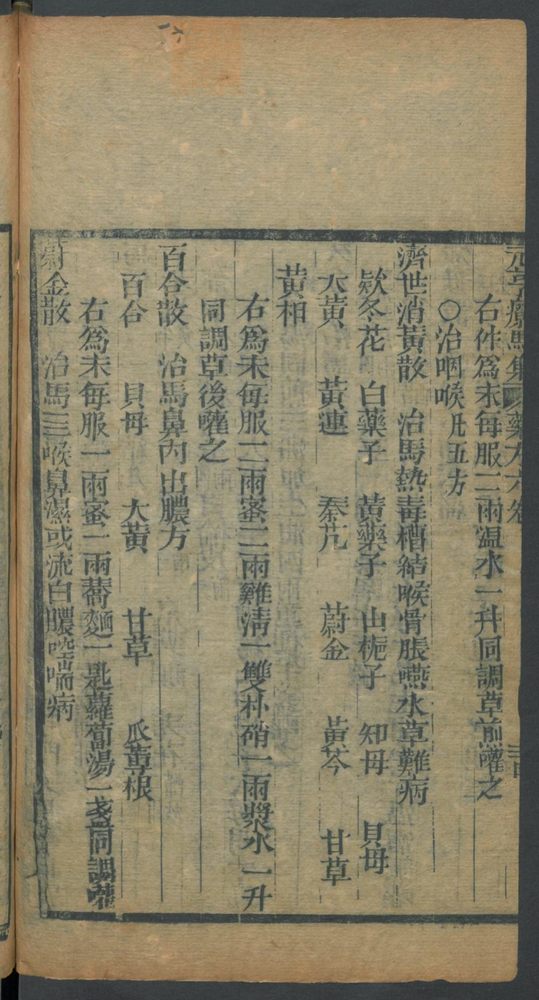 元亨療馬集 藥方六卷
右件爲末每服二兩溫水一升同調草前嚾之
○治咽喉凡五方
濟世消黃散 治馬熱毒槽結喉骨脹嚥水草難病
欵冬花 白藥子 黃藥子 山梔子 知母 貝母
大黃 黃連 秦艽 蔚金 黃芩 甘草
黃柏
右爲末每服二兩蜜二兩雞清一雙朴硝一兩漿水一升
同調草後嚾之
百合散 治馬鼻內出膿方
百合 貝母 大黃 甘草 瓜蔞根
右爲末每服一兩蜜一兩蕎麵一匙蘿蔔湯一盞同調嚾
蔚金散 治馬三喉鼻濕或流白膿喘病